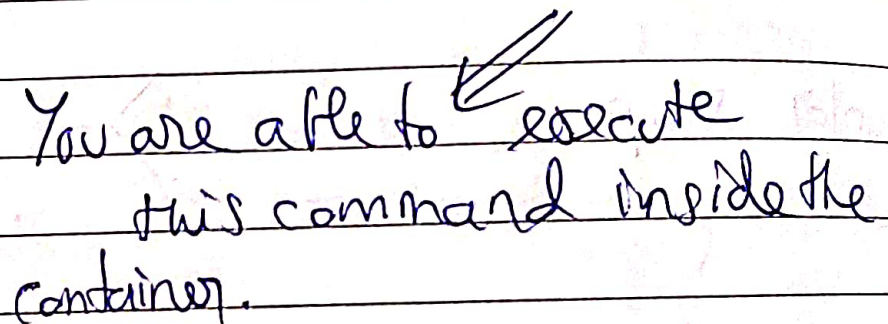 You are able to execute
this command inside the
container.